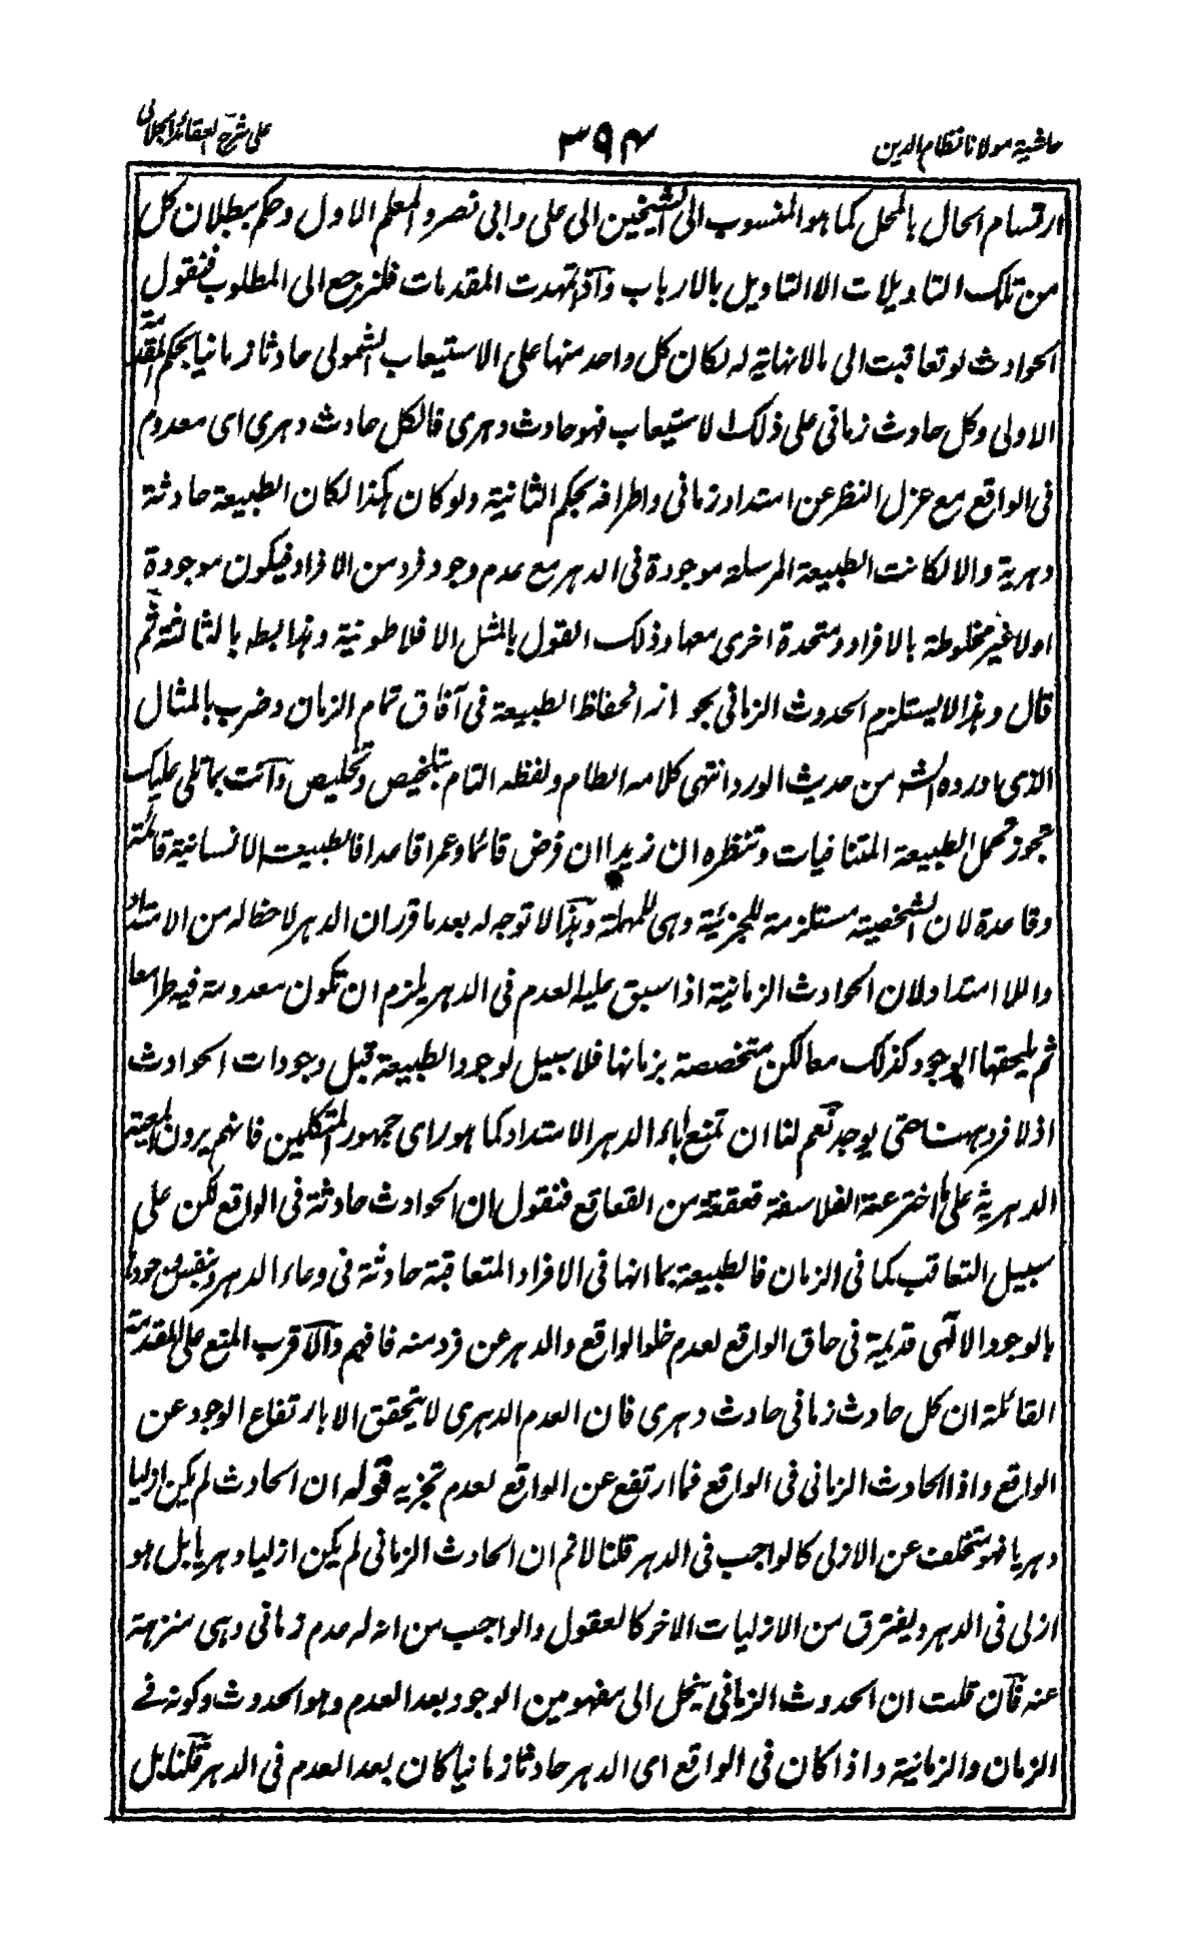 حاشیة مولانا نظام الدین
۳۹۴
على شرح العقائد الجلالی
ارتسام الحال بالمحل كما هو المنسوب الى الشیخین ابی علی وابی نصر والمعلم الاول وحكم ببطلان كل
من تلك التاویلات الا التاویل بالارباب واذ تمهدت المقدمات فلنرجع الى المطلوب فنقول
الحوادث لو تعاقبت الى مالانهایة له لكان كل واحد منها على الاستیعاب الشمولی حادثا زمانیا بحكم المقدمة
الاولى وكل حادث زمانی على ذلك الاستیعاب فهو حادث دهری فالكل حادث دهری ای معدوم
فی الواقع مع عزل النظر عن امتداد زمانی واطرافه بحكم الثانیة ولو كان هكذا لكان الطبیعة حادثة
دهریة والا لكانت الطبیعة المرسلة موجودة فی الدهر مع عدم وجود فرد من الافراد فیكون موجودة
اولا غیر مخلوطة بالافراد ومتحدة اخرى معها وذلك القول بالمثل الافلاطونیة وهذا بطل بالثالثة ثم
قال وهذا لا یستلزم الحدوث الزمانی بجواز انحفاظ الطبیعة فی آفاق تمام الزمان وضرب بالمثال
الذی اورده الش من حدیث الورد انتهى كلامه الطام ولفظه التام بتلخیص وتخلیص وانت بما تلی علیك
تجوز تحمل الطبیعة المتنافیات وتنظره ان زیدا ان فرض قائما وعمرا قاعدا فالطبیعة الانسانیة قائمة
وقاعدة لان الشخصیة مستلزمة للجزئیة وهی للمهملة وهذا لا توجه له بعد ما قرر ان الدهر لا حظ له من الامتداد
واللا امتداد لان الحوادث الزمانیة اذا سبق علیها العدم فی الدهر یلزم ان تكون معدومة فیه طرا معا
ثم یلحقها الوجود كذلك معا لكن متخصصة بزمانها فلا سبیل لوجود الطبیعة قبل وجودات الحوادث
اذ لا فرد هناك حتى یوجد نعم لنا ان تمنع اباء الدهر الامتداد كما هو رای جمهور المتكلمین فانهم یرون المعیة
الدهریة على ما اخترعته الفلاسفة قعقعة من القعاقع فنقول ان الحوادث حادثة فی الواقع لكن على
سبیل التعاقب كما فی الزمان فالطبیعة بما انها فی الافراد المتعاقبة حادثة فی وعاء الدهر وبنفس وجودها
بالوجود الالهی قدیمة فی حاق الواقع لعدم خلو الواقع والدهر عن فرد منه فافهم والاقرب المنع على المقدمة
القائلة ان كل حادث زمانی حادث دهری فان العدم الدهری لا یتحقق الا بارتفاع الوجود عن
الواقع واذا الحادث الزمانی فی الواقع فما ارتفع عن الواقع لعدم تجزیه قوله ان الحادث لم یكن ازلیا
دهریا فهو متخلف عن الازلی كالواجب فی الدهر قلنا لا نم ان الحادث الزمانی لم یكن ازلیا دهریا بل هو
ازلی فی الدهر ویفترق من الازلیات الاخر كالعقول والواجب من انه له عدم زمانی وهی منزهة
عنه فان قلت ان الحدوث الزمانی ینحل الى مفهومین الوجود بعد العدم وهو الحدوث وكونه فی
الزمان والزمانیة واذا كان فی الواقع ای الدهر حادثا زمانیا كان بعد العدم فی الدهر قلنا بل